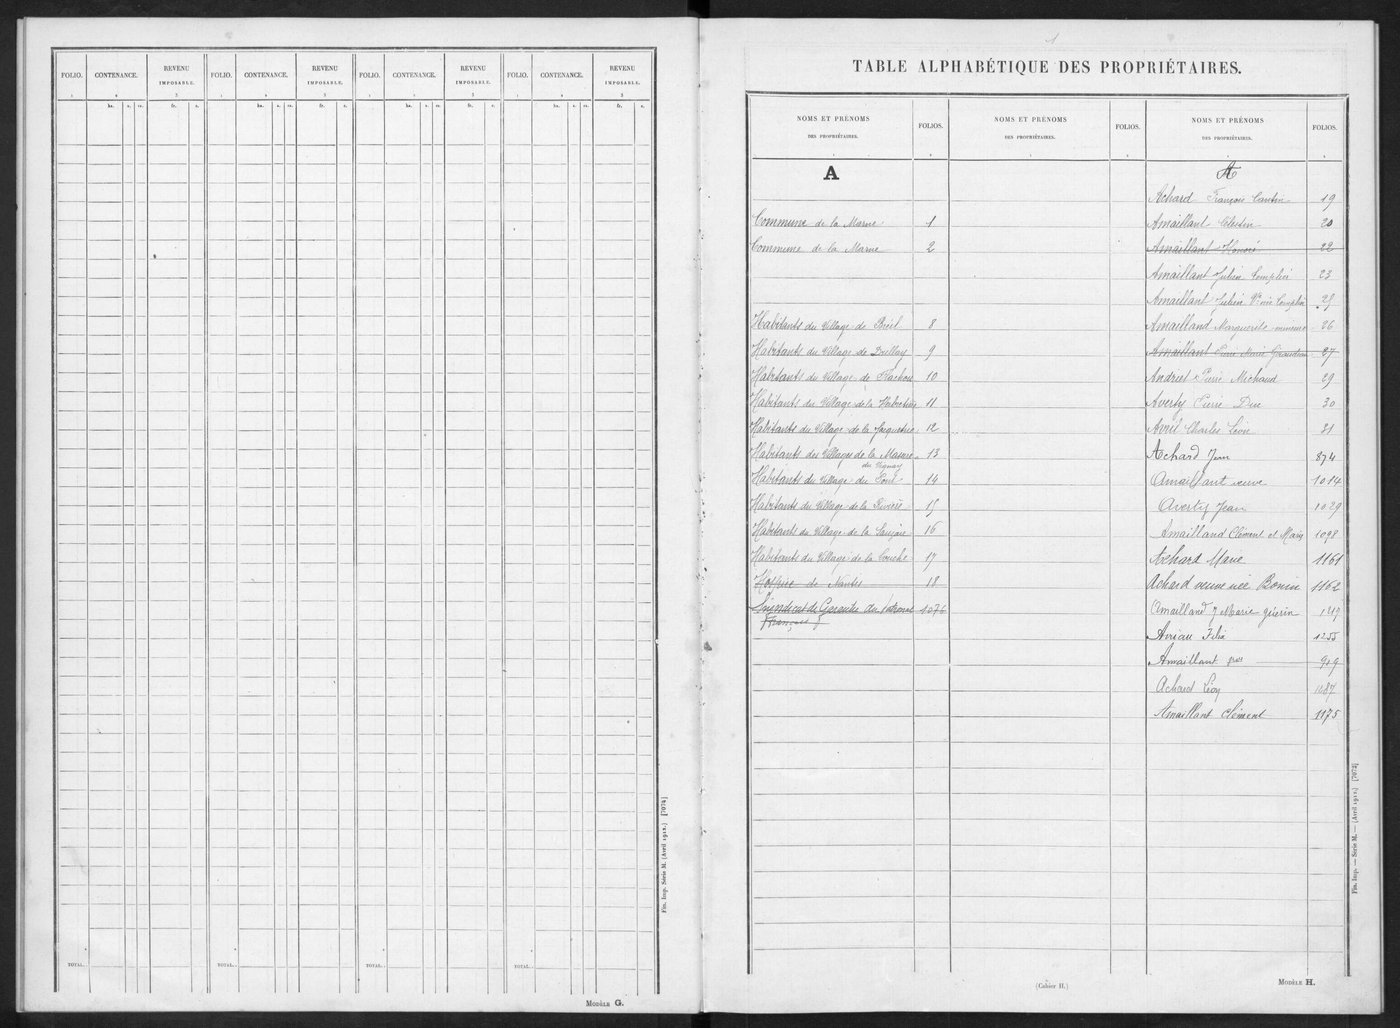 FOLIO. CONTENANCE. REVENU IMPOSABLE. FOLIO. CONTENANCE. REVENU IMPOSABLE. FOLIO. CONTENANCE. REVENU IMPOSABLE. FOLIO. CONTENANCE. REVENU IMPOSABLE.
1 2 3 1 2 3 1 2 3 1 2 3
ha. a. ca. fr. c. ha. a. ca. fr. c. ha. a. ca. fr. c. ha. a. ca. fr. c.
TOTAL. TOTAL. TOTAL. TOTAL.
Fin. Imp. Série M. (Avril 1912.) [7074]
MODÈLE G.
1
TABLE ALPHABÉTIQUE DES PROPRIÉTAIRES.
NOMS ET PRÉNOMS DES PROPRIÉTAIRES. FOLIOS. NOMS ET PRÉNOMS DES PROPRIÉTAIRES. FOLIOS. NOMS ET PRÉNOMS DES PROPRIÉTAIRES. FOLIOS.
1 2 1 2 1 2
A
Commune de la Marne 1
Commune de la Marne 2
Habitants du Village de Breil 8
Habitants du Village de 9
Habitants du Village de 10
Habitants du Village de la 11
Habitants du Village de la 12
Habitants des Villages de la Masure 13
du Vignay
Habitants du Village du Pont 14
Habitants du Village de la Rivière 15
Habitants du Village de la 16
Habitants du Village de la Couche 17
Hospice de Nantes 18
Syndicat de Garantie du 1076
Français
A
Achard François 19
Amaillant Célestin 20
Amaillant Honoré 22
Amaillant Julien 23
Amaillant Julien Vve née 25
Amailland Marguerite mineure 26
Amaillant Pierre Marie Giraudeau 27
Andriet Pierre Michaud 29
Averty Pierre Duc 30
Avril Charles 31
Achard Jean 874
Amaillant veuve 1014
Averty Jean 1029
Amailland Clément et Marie 1098
Achard Marie 1161
Achard veuve née Bonnin 1162
Amailland J Marie Guérin 147
Avriau Félix 1255
Amaillant 909
Achard Léon 1087
Amaillant Clément 1175
Fin. Imp. — Série M. — (Avril 1912.) [7072]
(Cahier H.)
MODÈLE H.